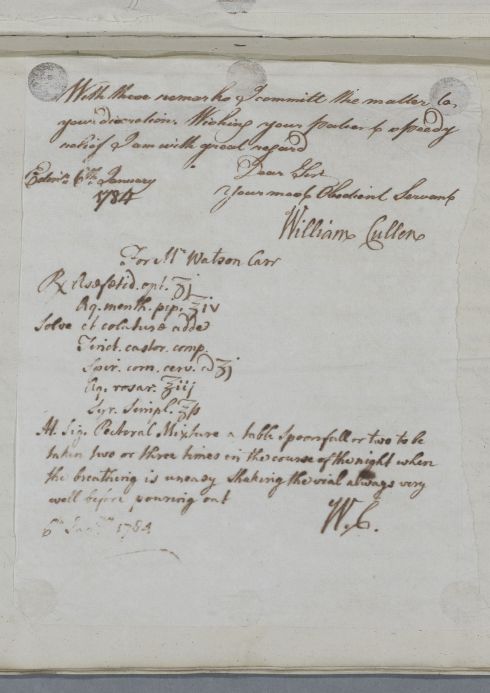 With these remarks I committ the matter to
your discretion. Wishing your patient a speedy
relief I am with great regard
Dear Sir
Edinr. 6th. January
1784
Your most Obedient Servant
William Cullen
For Mr. Watson Carr
℞ Asæfœtid. opt. ʒj
Aq. menth. pip. ℥iv
Solve et colaturæ adde
Tinct. castor. comp.
Spir. corn. cerv. a
Aq. rosar. ℥iij
Syr. Simpl. ℥ß
M. Sig. Pectoral Mixture a table Spoonfull or two to be
taken two or three times in the course of the night when
the breathing is uneasy Shaking the vial always very
well before pouring out
W.C.
6th Jany. 1784